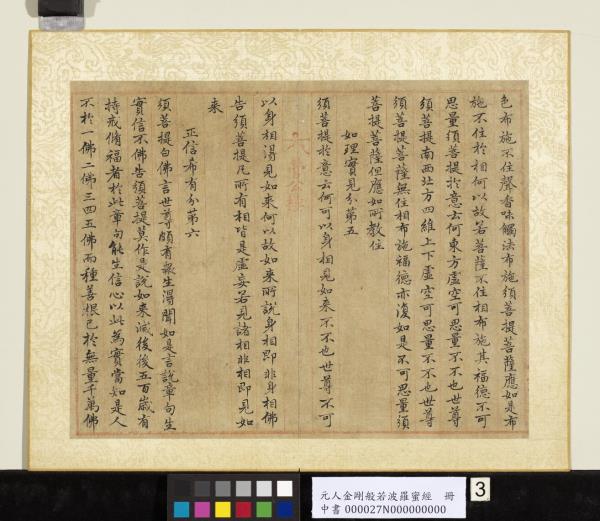 色布施不住聲香味觸法布施須菩提菩薩應如是布
施不住於相何以故若菩薩不住相布施其福德不可
思量須菩提於意云何東方虛空可思量不不也世尊
須菩提南西北方四維上下虛空可思量不不也世尊
須菩提菩薩無住相布施福德亦復如是不可思量須
菩提菩薩但應如所教住
如理實見分第五
須菩提於意云何可以身相見如來不不也世尊不可
以身相得見如來何以故如來所說身相即非身相佛
告須菩提凡所有相皆是虛妄若見諸相非相即見如
來
正信希有分第六
須菩提白佛言世尊頗有衆生得聞如是言說章句生
實信不佛告須菩提莫作是說如來滅後後五百歲有
持戒脩福者於此章句能生信心以此為實當知是人
不於一佛二佛三四五佛而種善根已於無量千萬佛
元人金剛般若波羅蜜經 冊
中書 000027N000000000
3